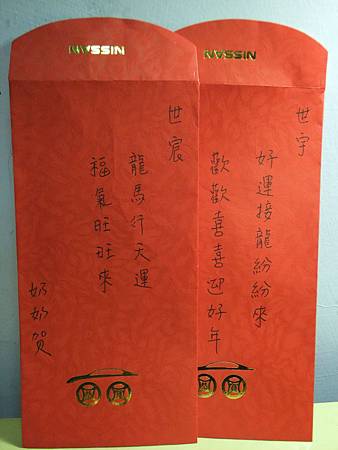 NISSAN
世宸
龍馬行天運
福氣旺旺來
奶奶贺
NISSAN
世宇
好運接龍紛紛來
歡歡喜喜迎好年